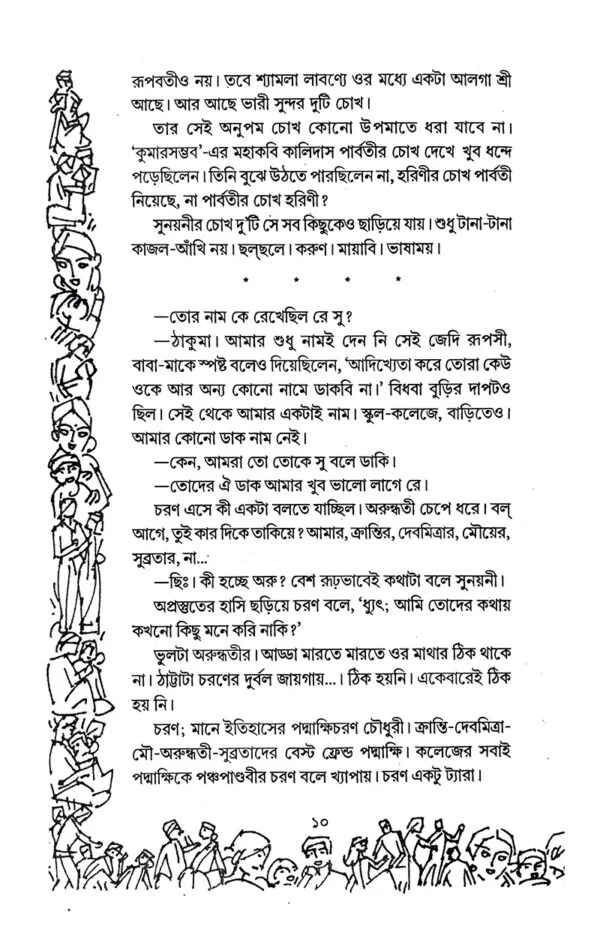 রূপবতীও নয়। তবে শ্যামলা লাবণ্যে ওর মধ্যে একটা আলগা শ্রী
আছে। আর আছে ভারী সুন্দর দুটি চোখ।
তার সেই অনুপম চোখ কোনো উপমাতে ধরা যাবে না।
‘কুমারসম্ভব’-এর মহাকবি কালিদাস পার্বতীর চোখ দেখে খুব ধন্দে
পড়েছিলেন। তিনি বুঝে উঠতে পারছিলেন না, হরিণীর চোখ পার্বতী
নিয়েছে, না পার্বতীর চোখ হরিণী?
সুনয়নীর চোখ দু’টি সে সব কিছুকেও ছাড়িয়ে যায়। শুধু টানা-টানা
কাজল-আঁখি নয়। ছল্‌ছলে। করুণ। মায়াবি। ভাষাময়।
* * * *
—তোর নাম কে রেখেছিল রে সু?
—ঠাকুমা। আমার শুধু নামই দেন নি সেই জেদি রূপসী,
বাবা-মাকে স্পষ্ট বলেও দিয়েছিলেন, ‘আদিখ্যেতা করে তোরা কেউ
ওকে আর অন্য কোনো নামে ডাকবি না।’ বিধবা বুড়ির দাপটও
ছিল। সেই থেকে আমার একটাই নাম। স্কুল-কলেজে, বাড়িতেও।
আমার কোনো ডাক নাম নেই।
—কেন, আমরা তো তোকে সু বলে ডাকি।
—তোদের ঐ ডাক আমার খুব ভালো লাগে রে।
চরণ এসে কী একটা বলতে যাচ্ছিল। অরুন্ধতী চেপে ধরে। বল্
আগে, তুই কার দিকে তাকিয়ে? আমার, ক্রান্তির, দেবমিত্রার, মৌয়ের,
সুব্রতার, না...
—ছিঃ। কী হচ্ছে অরু? বেশ রূঢ়ভাবেই কথাটা বলে সুনয়নী।
অপ্রস্তুতের হাসি ছড়িয়ে চরণ বলে, ‘ধ্যুৎ; আমি তোদের কথায়
কখনো কিছু মনে করি নাকি?’
ভুলটা অরুন্ধতীর। আড্ডা মারতে মারতে ওর মাথার ঠিক থাকে
না। ঠাট্টাটা চরণের দুর্বল জায়গায়...। ঠিক হয়নি। একেবারেই ঠিক
হয় নি।
চরণ; মানে ইতিহাসের পদ্মাক্ষিচরণ চৌধুরী। ক্রান্তি-দেবমিত্রা-
মৌ-অরুন্ধতী-সুব্রতাদের বেস্ট ফ্রেন্ড পদ্মাক্ষি। কলেজের সবাই
পদ্মাক্ষিকে পঞ্চপাণ্ডবীর চরণ বলে খ্যাপায়। চরণ একটু ট্যারা।
১০